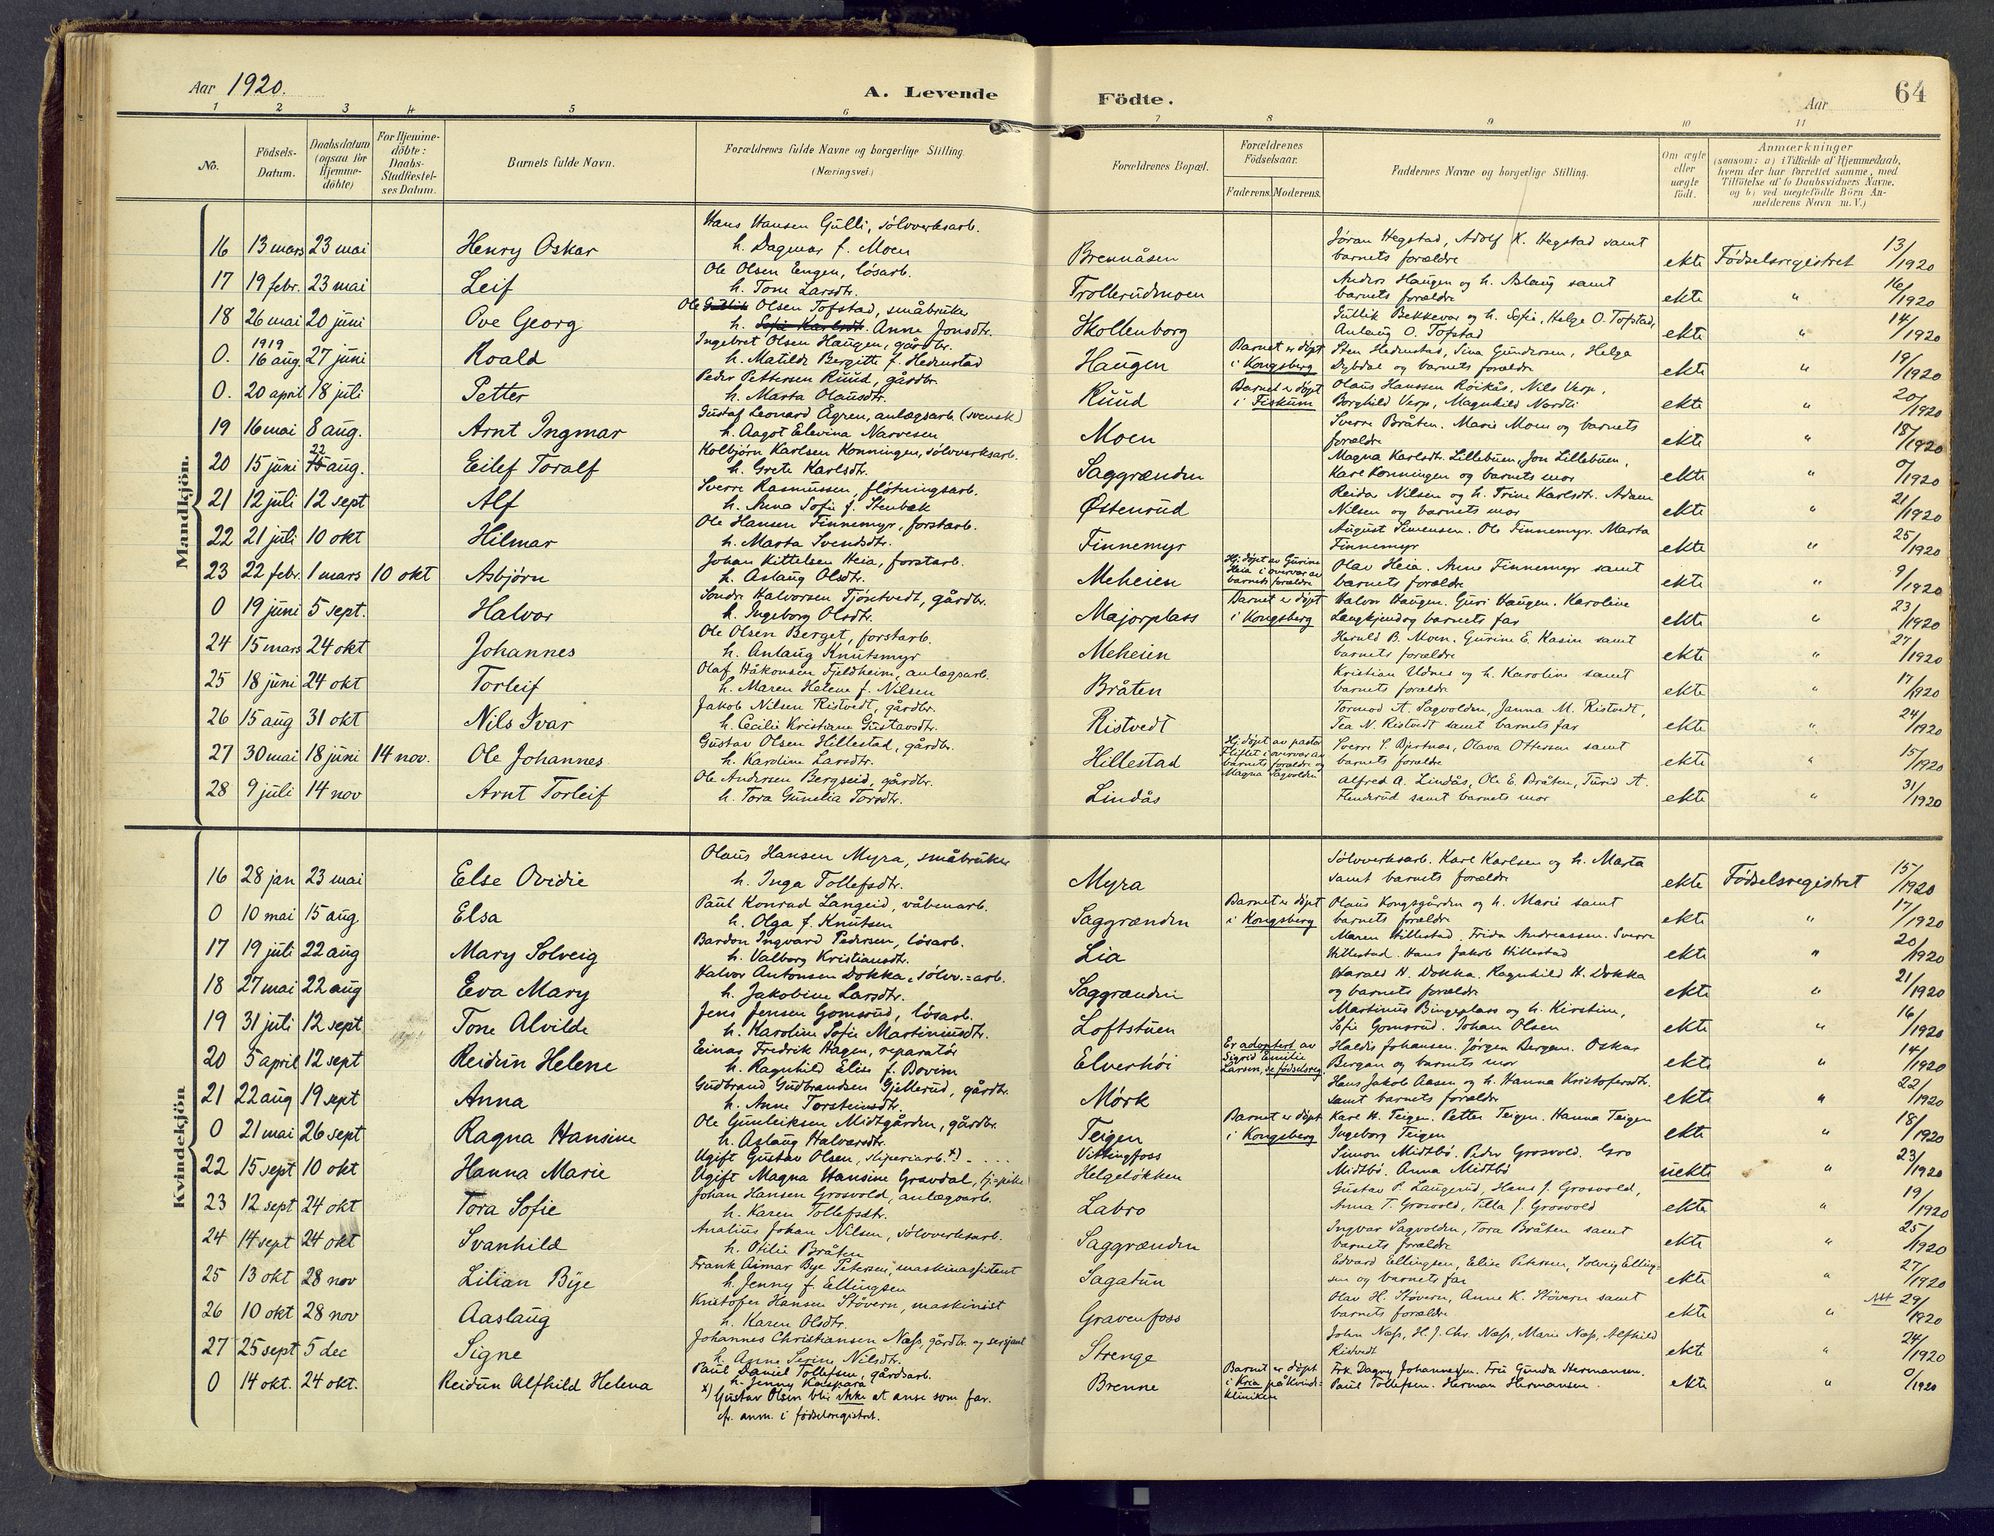 Aar 1920. A. Levende Födte. Aar 64
1 2 3 4 5 6 7 8 9 10 11
No. Födsels-Datum. Daabsdatum (ogsaa for Hjemme-döbte) For Hjemme-döbte: Daabs-Stadfæstel-ses Datum. Barnets fulde Navn. Forældrenes fulde Navne og borgerlige Stilling. (Næringsvei.) Forældrenes Bopæl. Forældrenes Födselsaar. Faderens. Moderens. Faddernes Navne og borgerlige Stilling. Om ægte eller uægte födt. Anmærkninger (saasom: a) i Tilfælde af Hjemmedaab, hvem der har forrettet samme, med Tilföielse af to Daabsvidners Navne. og b) ved uægtefödte Börn An-melderens Navn m. V.)
Mandkjön.
16 13 mars 23 mai Henry Oskar Hans Hansen Gulli, sølvverksarb. h. Dagmar f. Moen Brennåsen Jøran Hegstad, Adolf K. Hegstad samt barnets forældre ekte Fødselsregistret 13/1920
17 19 febr. 23 mai Leif Ole Olsen Engen, løsarb. h. Tone Larsdtr. Trollerudmoen Anders Haugen og h. Aslaug samt barnets forældre ekte " 16/1920
18 26 mai 20 juni Ove Georg Ole Gullik Olsen Tofstad, småbruker h. Sofie Karlsdt. Anne Jonsdtr. Skollenborg Gullik Bekkevar og h. Sofie, Helge O. Tofstad, Anlaug O. Tofstad ekte " 14/1920
0. 1919 16 aug. 27 juni Roald Ingebret Olsen Haugen, gårdbr. h. Matilde Bergitte f. Hedenstad Haugen Barnet er døpt i Kongsberg Sten Hedenstad, Sina Gundersen, Helga Dybdal og barnets forældre ekte " 19/1920
0. 20 april 18 juli Petter Peder Pettersen Ruud, gårdbr. h. Marta Olausdtr. Ruud Barnet er døpt i Fiskum Olaus Hanssen Röikås, Nils Verp, Borghild Verp, Magnhild Nordli ekte " 20/1920
19 16 mai 8 aug. Arnt Ingmar Gustaf Leonard Ågren, anlægsarb (svensk) h. Aagot Elevina Narvesen Moen Sverre Bråten. Marie Moen og barnets forældre ekte " 18/1920
20 15 juni 22 15 aug. Eilef Toralf Kolbjørn Karlsen Konningen, sølvverksarb. h. Grete Karlsdtr. Saggrænden Magna Karlsdtr. Lillebuen, Jon Lillebuen, Kare Konningen og barnets mor ekte " 0/1920
21 12 juli 12 sept Alf Sverre Rasmussen, fløtningsarb. h. Anna Sofie f. Stenbæk Østenrud Reidar Nilsen og h. Trine Karlsdtr. Adam Nilsen og barnets mor ekte " 21/1920
22 21 juli 10 okt Hilmar Ole Hansen Finnemyr, forstarb. h. Marta Svendsdtr. Finnemyr August Simensen. Ole Finnemyr. Marta Finnemyr ekte " 25/1920
23 22 febr. 1 mars 10 okt Asbjørn Johan Kittelsen Heia, forstarb. h. Aslaug Olsdtr. Meheien Hj. døpt av Gurine Heia i overvær av barnets forældre Olav Heia. Anne Finnemyr samt barnets forældre ekte " 9/1920
0 19 juni 5 sept. Halvor Sondre Halvorsen Tjöntvedt, gårdbr. h. Ingeborg Olsdtr. Majorplass Barnet er døpt i Kongsberg Halvor Haugen. Guri Haugen. Karoline Langkjend og barnets far ekte " 23/1920
24 15 mars 24 okt Johannes Ole Olsen Berget, forstarb. h. Anlaug Knutsmyr Meheien Herald B. Moen. Gurine E. Kasin samt barnets forældre ekte " 27/1920
25 18 juni 24 okt Torleif Olaf Håkonsen Fjeldheim, anlægsarb. h. Maren Helene f. Nilsen Bråten Kristian Udnes og h. Karoline samt barnets forældre ekte " 17/1920
26 15 aug 31 okt Nils Ivar Jakob Nilsen Ristvedt, gårdbr. h. Cecilie Kristiane Gustavsdtr. Ristvedt Tormod A. Sagvolden, Janna M. Ristvedt, Tea N. Ristvedt samt barnets far ekte " 24/1920
27 30 mai 18 juni 14 nov. Ole Johannes Gustav Olsen Hillestad, gårdbr. h. Karoline Larsdtr. Hillestad Hj. døpt av pastor Fliflet i overvær av barnets forældre og Magna Sagvolden Sverre S. Bjertnæs, Olava Ottersen samt barnets forældre ekte " 15/1920
28 9 juli 14 nov Arnt Torleif Ole Andersen Bergseid, gårdbr. h. Tora Gunelia Torsdtr. Lindås Alfred A. Lindås, Ole E. Bråten, Turid A. Flenderud samt barnets mor ekte " 31/1920
Kvindekjön
16 28 jan 23 mai Else Ovidie Olaus Hansen Myra, småbruker h. Inga Tollefsdtr. Myra Sølvverksarb. Karl Karlsen og h. Marta samt barnets forældre ekte Fødselsregistret 15/1920
0 10 mai 15 aug. Elsa Paul Konrad Langeid, våbenarb. h. Olga f. Knutsen Saggrænden Barnet er døpt i Kongsberg Olaus Kongsgården og h. Marie samt barnets forældre ekte " 17/1920
17 19 juli 22 aug Mary Solveig Bardon Ingvard Pedersen, løsarb. h. Valborg Kristiansdtr. Lia Maren Hillestad. Frida Andreassen. Sverre Hillestad. Hans Jakob Hillestad ekte " 20/1920
18 27 mai 22 aug Eva Mary Halvor Antonsen Dokka, sølvv.=arb. h. Jakobine Larsdtr. Saggrænden Harald H. Dokka. Ragnhild H. Dokka og barnets forældre ekte " 21/1920
19 31 juli 12 sept Tone Alvilde Jens Jensen Gomsrud, løsarb. h. Karoline Sofie Martiniusdtr. Loftstuen Martinius Bingeplass og h. Kirstine, Sofie Gomsrud. Johan Olsen ekte " 16/1920
20 5 april 12 sept Reidun Helene Einar Fredrik Hagen, reparatør h. Ragnhild Elise f. Bovim Elverhöi Er adoptert av Sigrid Emilie Larsen, se fødselsreg. Haldis Johansen. Jørgen Bergan. Oskar Bergan og barnets mor ekte " 14/1920
21 22 aug 19 sept Anna Gudbrand Gudbrandsen Gjellerud, gårdbr. h. Anne Torsteinsdtr. Mørk Hans Jakob Aasen og h. Hanna Kristofersdtr. samt barnets forældre ekte " 22/1920
0 21 mai 26 sept Ragna Hansine Ole Gunleiksen Midtgården, gårdbr. h. Aslaug Halvorsdtr. Teigen Barnet er døpt i Kongsberg Kare H. Teigen. Petter Teigen. Hanna Teigen Ingeborg Teigen ekte " 18/1920
22 15 sept 10 okt Hanna Marie Ugift Gustav Olsen, sliperiarb. x) Ugift Magna Hansine Gravdal, tj=pike Vittingfoss Helgeløkken Simon Midtbö. Peder Grosvold. Gro Midtbö. Anna Midtbö uekte " 23/1920
23 12 sept 24 okt Tora Sofie Johan Hansen Grosvold, anlægsarb. h. Karen Tollefsdtr. Labro Gustav P. Laugerud, Hans J. Grosvold, Anna T. Grosvold, Tilla J. Grosvold ekte " 19/1920
24 14 sept 24 okt Svanhild Analius Johan Nilsen, sølvverksarb. h. Otilie Bråten Saggrænden Ingvar Sagvolden, Tora Bråten samt barnets forældre ekte " 25/1920
25 13 okt 28 nov Lilian Bye Frank Aimar Bye Petersen, maskinassistent h. Jenny f. Ellingsen Sagatun Edvard Ellingsen, Elise Petersen, Solveig Elling-sen og barnets far ekte " 27/1920
26 10 okt 28 nov Aaslaug Kristofer Hansen Støvern, maskinist h. Karen Olsdtr. Gravenfoss Olav H. Støvern, Anne K. Støvern samt barnets forældre ekte " 29/1920
27 25 sept 5 dec Signe Johannes Christiansen Næss, gårdbr og sersjant h. Anne Serine Nilsdtr. Strenge John Næss, H. J. Chr. Næss, Marie Næss, Alfhild Ristvedt ekte " 24/1920
0 14 okt. 24 okt. Reidun Alfhild Helena Paul Daniel Tollefsen, gårdsarb. h. Jenny Kaspara Brenne Barnet er døpt i Kria på Kvinde-kliniken Frk. Dagny Johannesen. Fru Gunda Hermansen. Paul Tollefsen. Herman Hermansen ekte " 0/1920
x) Gustav Olsen blir ikke at anse som far. cfr. anm. i fødselsregistret.